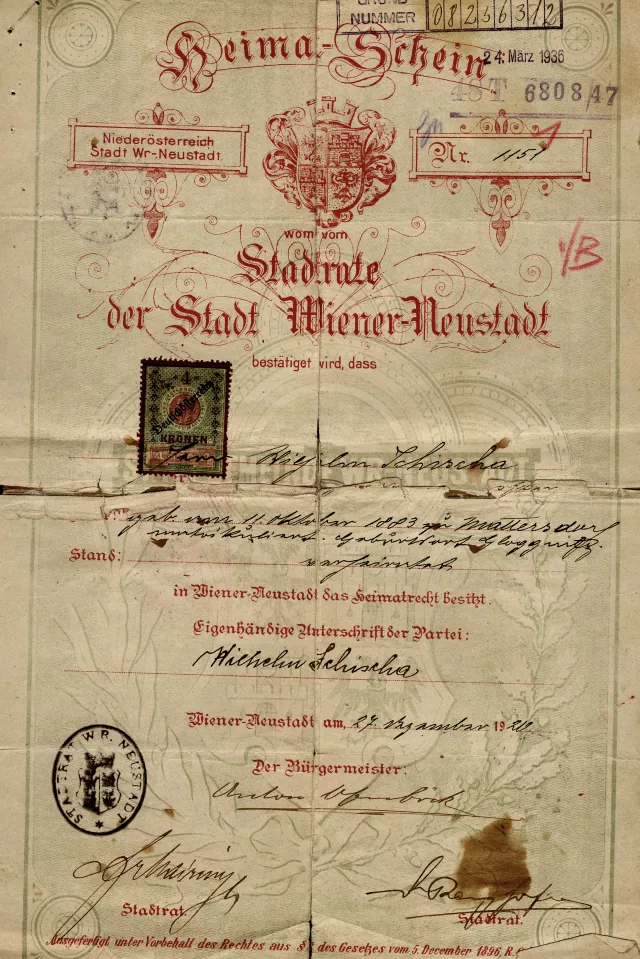 GRUND
NUMMER 08256312
Heima-Schein
24. März 1936
48T 6808/47
Niederösterreich
Stadt Wr-Neustadt
Nr. 1151
1/B
wom vom
Stadtrate
der Stadt Wiener-Neustadt
bestätiget wird, dass
4
Deutschösterreich
KRONEN
Herr Wilhelm Schischa
geb. am 11. Oktober 1883 in Mattersdorf
matrikuliert. Geburtsort Gloggnitz.
Stand: verheiratet
in Wiener-Neustadt das Heimatrecht besitzt.
Eigenhändige Unterschrift der Partei:
Wilhelm Schischa
Wiener-Neustadt am, 27. Dezember 1920
Der Bürgermeister:
Anton Ofenböck
STADTRAT WR. NEUSTADT
Stadtrat.
Stadtrat.
Ausgefertigt unter Vorbehalt des Rechtes aus § des Gesetzes vom 5. December 1896, R.